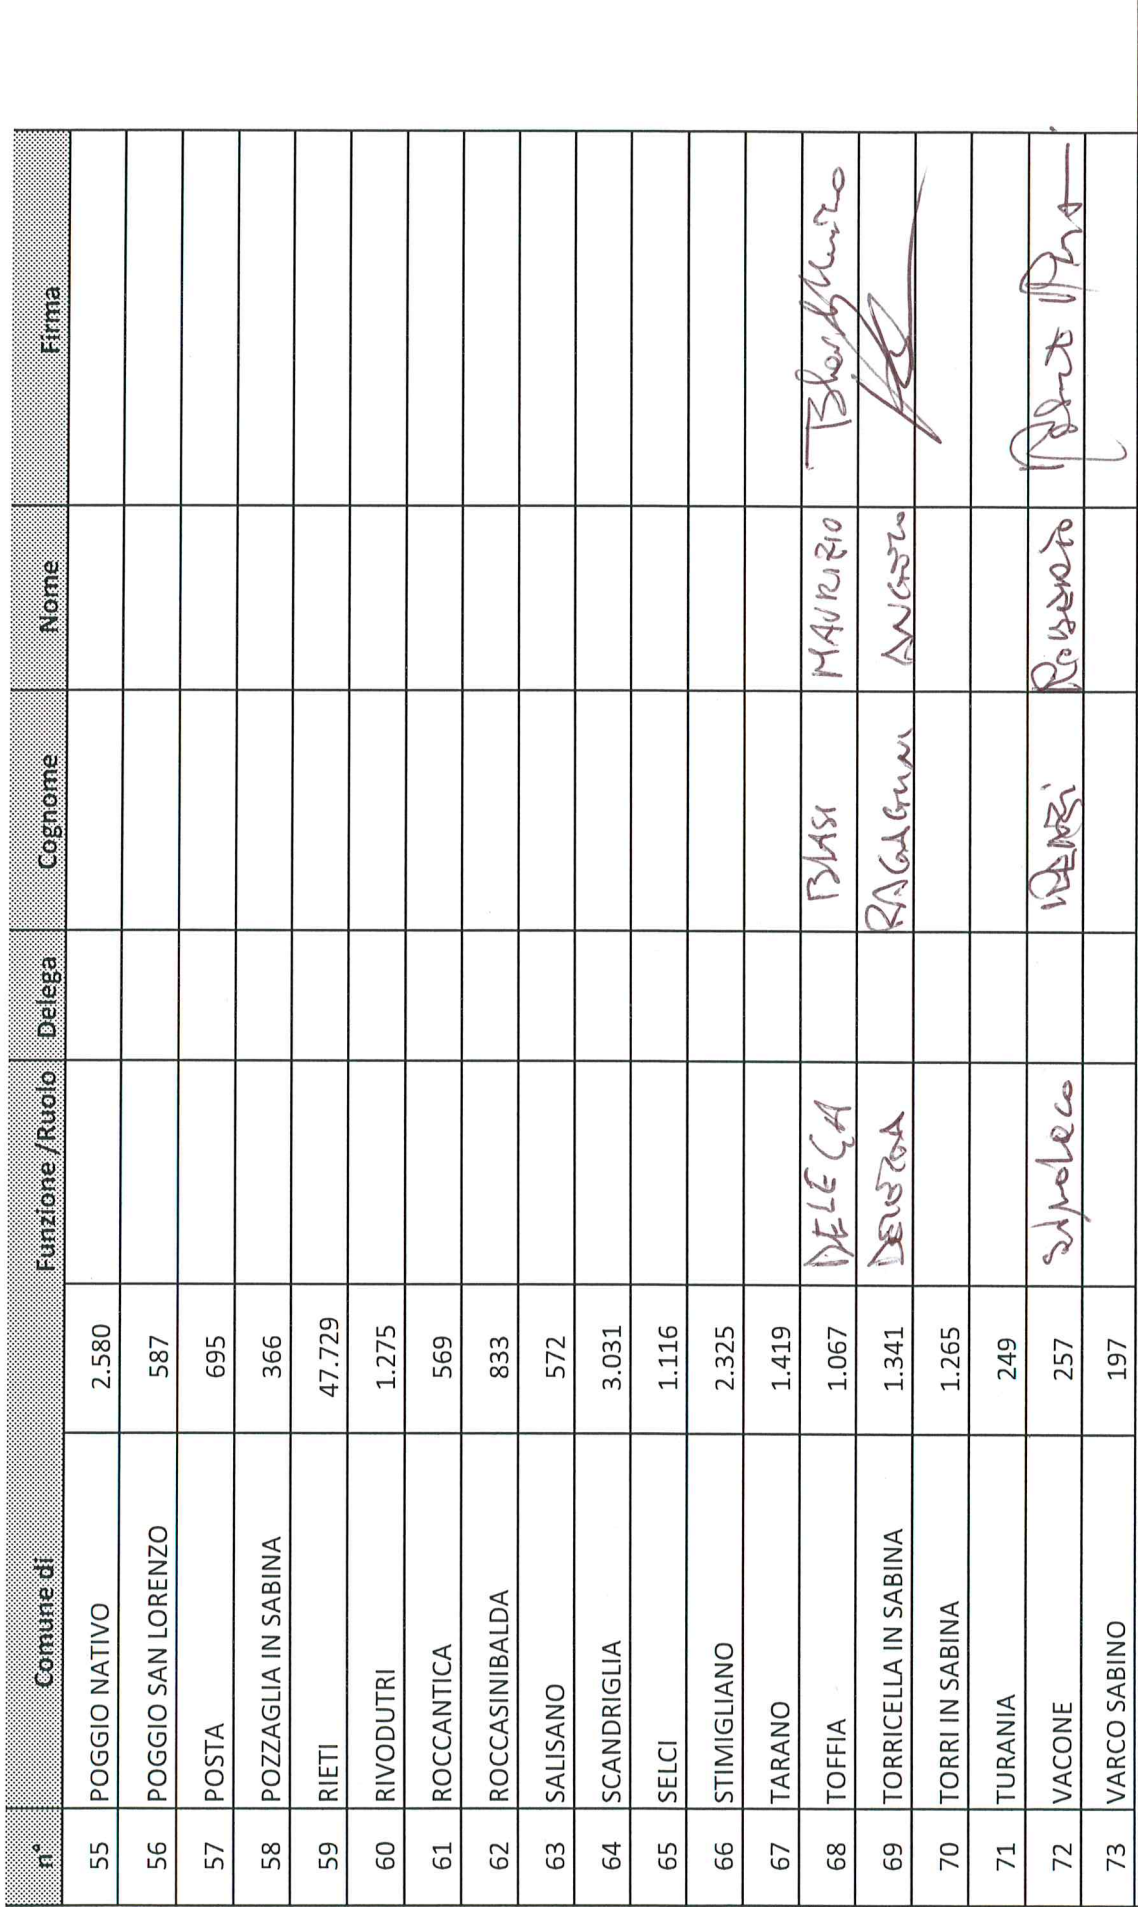 n° Comune di Funzione /Ruolo Delega Cognome Nome Firma
55 POGGIO NATIVO 2.580
56 POGGIO SAN LORENZO 587
57 POSTA 695
58 POZZAGLIA IN SABINA 366
59 RIETI 47.729
60 RIVODUTRI 1.275
61 ROCCANTICA 569
62 ROCCASINIBALDA 833
63 SALISANO 572
64 SCANDRIGLIA 3.031
65 SELCI 1.116
66 STIMIGLIANO 2.325
67 TARANO 1.419
68 TOFFIA 1.067 DELEGA BLASI MAURIZIO
69 TORRICELLA IN SABINA 1.341 DELEGA ANGELO
70 TORRI IN SABINA 1.265
71 TURANIA 249
72 VACONE 257 sindaco RENZI ROBERTO
73 VARCO SABINO 197